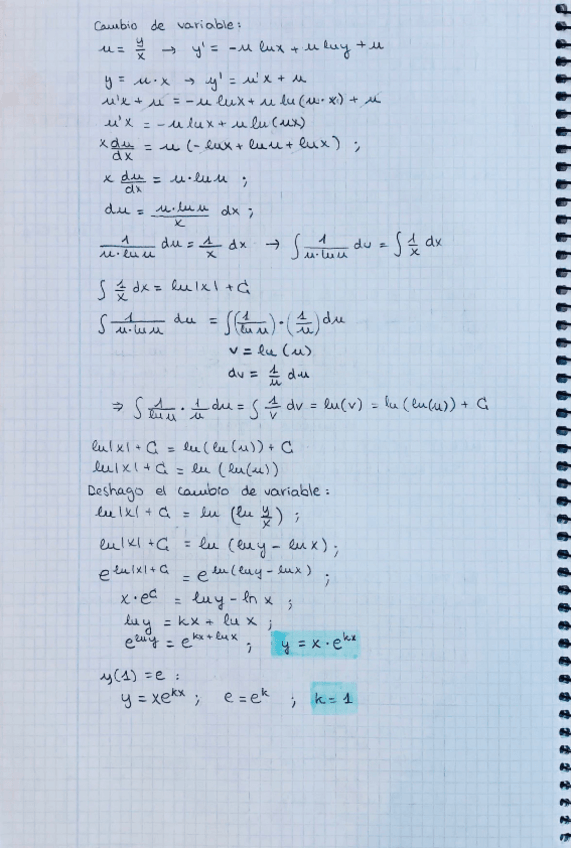 Cambio de variable:
u = y/x → y' = -u lnx + u lny + u
y = u·x → y' = u'x + u
u'x + u = -u lnx + u ln(u·x) + u
u'x = -u lnx + u ln(ux)
x du/dx = u (-lnx + lnu + lnx) ;
x du/dx = u·lnu ;
du = u·lnu/x dx ;
1/(u·lnu) du = 1/x dx → ∫ 1/(u·lnu) du = ∫ 1/x dx
∫ 1/x dx = ln|x| + C
∫ 1/(u·lnu) du = ∫(1/lnu)·(1/u) du
v = ln(u)
dv = 1/u du
⇒ ∫ 1/lnu · 1/u du = ∫ 1/v dv = ln(v) = ln(ln(u)) + C
ln|x| + C = ln(ln(u)) + C
ln|x| + C = ln(ln(u))
Deshago el cambio de variable:
ln|x| + C = ln(ln y/x) ;
ln|x| + C = ln(lny - lnx) ;
e^(ln|x|+C) = e^(ln(lny - lnx)) ;
x·e^C = lny - ln x ;
lny = kx + ln x ;
e^(lny) = e^(kx + lnx) ; y = x·e^(kx)
y(1) = e :
y = xe^(kx) ; e = e^k ; k = 1